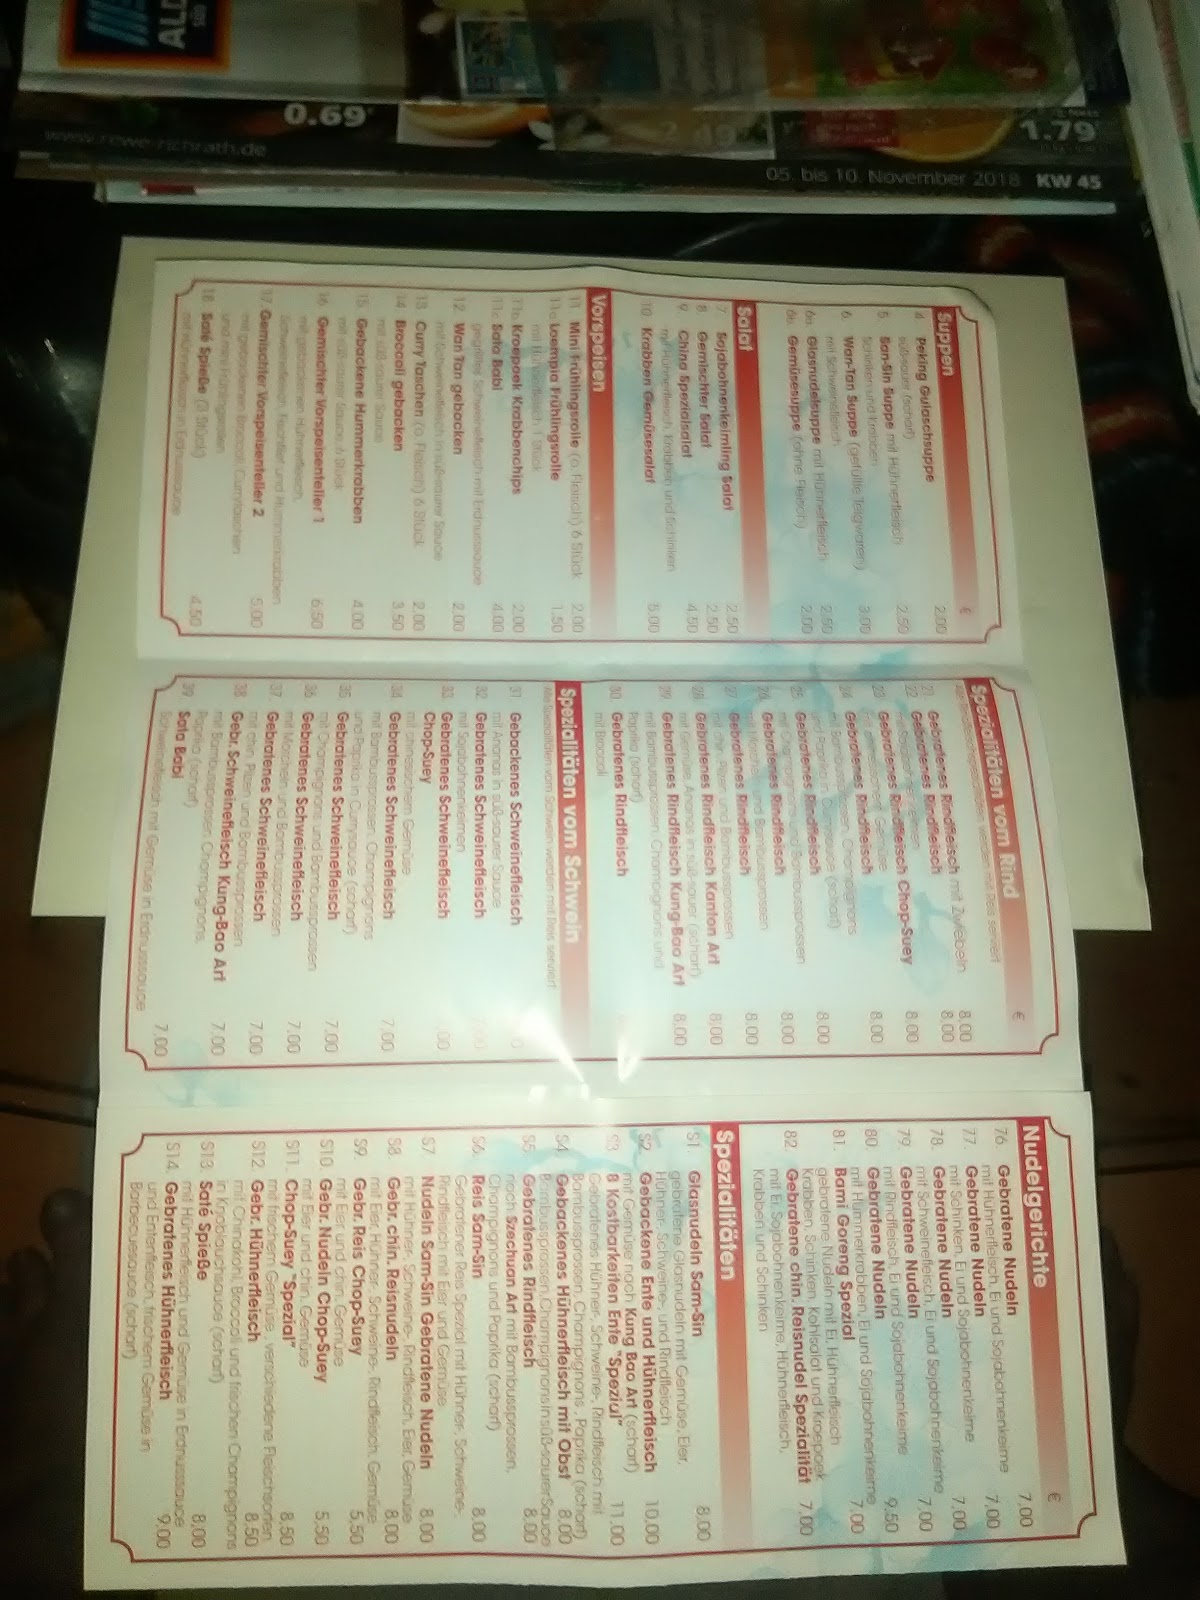 ALDI
SÜD
0.69
www.rewe-richrath.de
1.79
05. bis 10. November 2018 KW 45
Suppen €
4. Peking Gulaschsuppe 2.00
süßsauer (scharf)
5. San-Sin Suppe mit Hühnerfleisch 2.50
Schinken und Krabben
6. Wan-Tan Suppe (gefüllte Teigwaren) 3.00
mit Schweinefleisch
6a Glasnudelsuppe mit Hühnerfleisch 2.50
6b. Gemüsesuppe (ohne Fleisch) 2.00
Salat
7. Sojabohnenkeimling Salat 2.50
8. Gemischter Salat 2.50
9. China Spezialsalat 4.50
mit Hühnerfleisch, Krabben und Schinken
10. Krabben Gemüsesalat 5.00
Vorspeisen
11. Mini Frühlingsrolle (o. Fleisch) 6 Stück 2.00
11a Loempia Frühlingsrolle 1.50
mit Hühnerfleisch 1 Stück
11b Kroepoek Krabbenchips 2.00
11c Sata Babi 4.00
gegrilltes Schweinefleisch mit Erdnusssauce
12. Wan Tan gebacken 2.00
mit Schweinefleisch in süß-saurer Sauce
13. Curry Taschen (o. Fleisch) 6 Stück 2.00
14. Broccoli gebacken 3.50
mit süß-saurer Sauce
15. Gebackene Hummerkrabben 4.00
mit süß-saurer Sauce 6 Stück
16. Gemischter Vorspeisenteller 1 6.50
mit gebackenen Hühnerfleisch,
Schweinefleisch, Fischfilet und Hummerkrabben
17. Gemischter Vorspeisenteller 2 5.00
mit gebackenen Broccoli, Currytaschen
und Frühlingsrollen
18. Saté Spieße (3 Stück) 4.50
mit Hühnerfleisch in Erdnusssauce
Spezialitäten vom Rind €
Alle Rindfleischspezialitäten werden mit Reis serviert
21. Gebratenes Rindfleisch mit Zwiebeln 8.00
22. Gebratenes Rindfleisch 8.00
23. Gebratenes Rindfleisch Chop-Suey 8.00
Gemüse
Gebratenes Rindfleisch 8.00
mit Bambussprossen, Champignons
und Paprika in Currysauce (scharf)
25. Gebratenes Rindfleisch 8.00
mit Champignons und Bambussprossen
26. Gebratenes Rindfleisch 8.00
mit Morcheln und Bambussprossen
27. Gebratenes Rindfleisch 8.00
mit chin. Pilzen und Bambussprossen
28. Gebratenes Rindfleisch Kanton Art 8.00
mit Gemüse, Ananas in süß-sauer (scharf)
29. Gebratenes Rindfleisch Kung-Bao Art 8.00
mit Bambussprossen, Champignons und
Paprika (scharf)
30. Gebratenes Rindfleisch
mit Broccoli
Spezialitäten vom Schwein
Alle Spezialitäten vom Schwein werden mit Reis serviert
31. Gebackenes Schweinefleisch
mit Ananas in süß-saurer Sauce
32. Gebratenes Schweinefleisch
mit Sojabohnenkeimen
33. Gebratenes Schweinefleisch
Chop-Suey
mit chinesischem Gemüse
34. Gebratenes Schweinefleisch 7.00
mit Bambussprossen, Champignons
und Paprika in Currysauce (scharf)
35. Gebratenes Schweinefleisch 7.00
mit Champignons und Bambussprossen
36. Gebratenes Schweinefleisch 7.00
mit Morcheln und Bambussprossen
37. Gebratenes Schweinefleisch 7.00
mit chin. Pilzen und Bambussprossen
38. Gebr. Schweinefleisch Kung-Bao Art 7.00
mit Bambussprossen, Champignons,
Paprika (scharf)
39. Sata Babi 7.00
Schweinefleisch mit Gemüse in Erdnusssauce
Nudelgerichte €
76. Gebratene Nudeln 7.00
mit Hühnerfleisch, Ei und Sojabohnenkeime
77. Gebratene Nudeln 7.00
mit Schinken, Ei und Sojabohnenkeime
78. Gebratene Nudeln 7.00
mit Schweinefleisch, Ei und Sojabohnenkeime
79. Gebratene Nudeln 7.00
mit Rindfleisch, Ei und Sojabohnenkeime
80. Gebratene Nudeln 9.50
mit Hummerkrabben, Ei und Sojabohnenkeime
81. Bami Goreng Spezial 7.00
gebratene Nudeln mit Ei, Hühnerfleisch
Krabben, Schinken, Kohlsalat und Kroepoek
82. Gebratene chin. Reisnudel Spezialität 7.00
mit Ei, Sojabohnenkeime, Hühnerfleisch,
Krabben und Schinken
Spezialitäten
S1. Glasnudeln Sam-Sin 8.00
gebratene Glasnudeln mit Gemüse, Eier,
Hühner- Schweine-, und Rindfleisch
S2. Gebackene Ente und Hühnerfleisch 10.00
mit Gemüse nach Kung Bao Art (scharf)
S3 8 Kostbarkeiten Ente "Spezial" 11.00
Gebratenes Hühner-, Schweine-, Rindfleisch mit
Bambussprossen, Champignons, Paprika (scharf)
S4 Gebackenes Hühnerfleisch mit Obst 8.00
Bambussprossen, Champignons in süß-saurer Sauce
S5 Gebratenes Rindfleisch 8.00
nach Szechuan Art mit Bambussprossen,
Champignons und Paprika (scharf)
S6. Reis Sam-Sin 8.00
Gebratener Reis Spezial mit Hühner-, Schweine-,
Rindfleisch mit Eier und Gemüse
S7 Nudeln Sam-Sin Gebratene Nudeln 8.00
mit Hühner-, Schweine-, Rindfleisch, Eier, Gemüse
S8. Gebr. chin. Reisnudeln 8.00
mit Eier, Hühner-, Schweine-, Rindfleisch, Gemüse
S9. Gebr. Reis Chop-Suey 5.50
mit Ei und chin. Gemüse
S10. Gebr. Nudeln Chop-Suey 5.50
mit Eier und chin. Gemüse
S11. Chop-Suey "Spezial" 8.50
mit frischem Gemüse, verschiedene Fleischsorten
S12. Gebr. Hühnerfleisch 8.50
mit Chinakohl, Broccoli und frischen Champignons
in Knoblauchsauce (scharf)
S13. Saté Spieße 8.00
mit Hühnerfleisch und Gemüse in Erdnusssauce
S14. Gebratenes Hühnerfleisch 9.00
und Entenfleisch, frischem Gemüse in
Barbecuesauce (scharf)